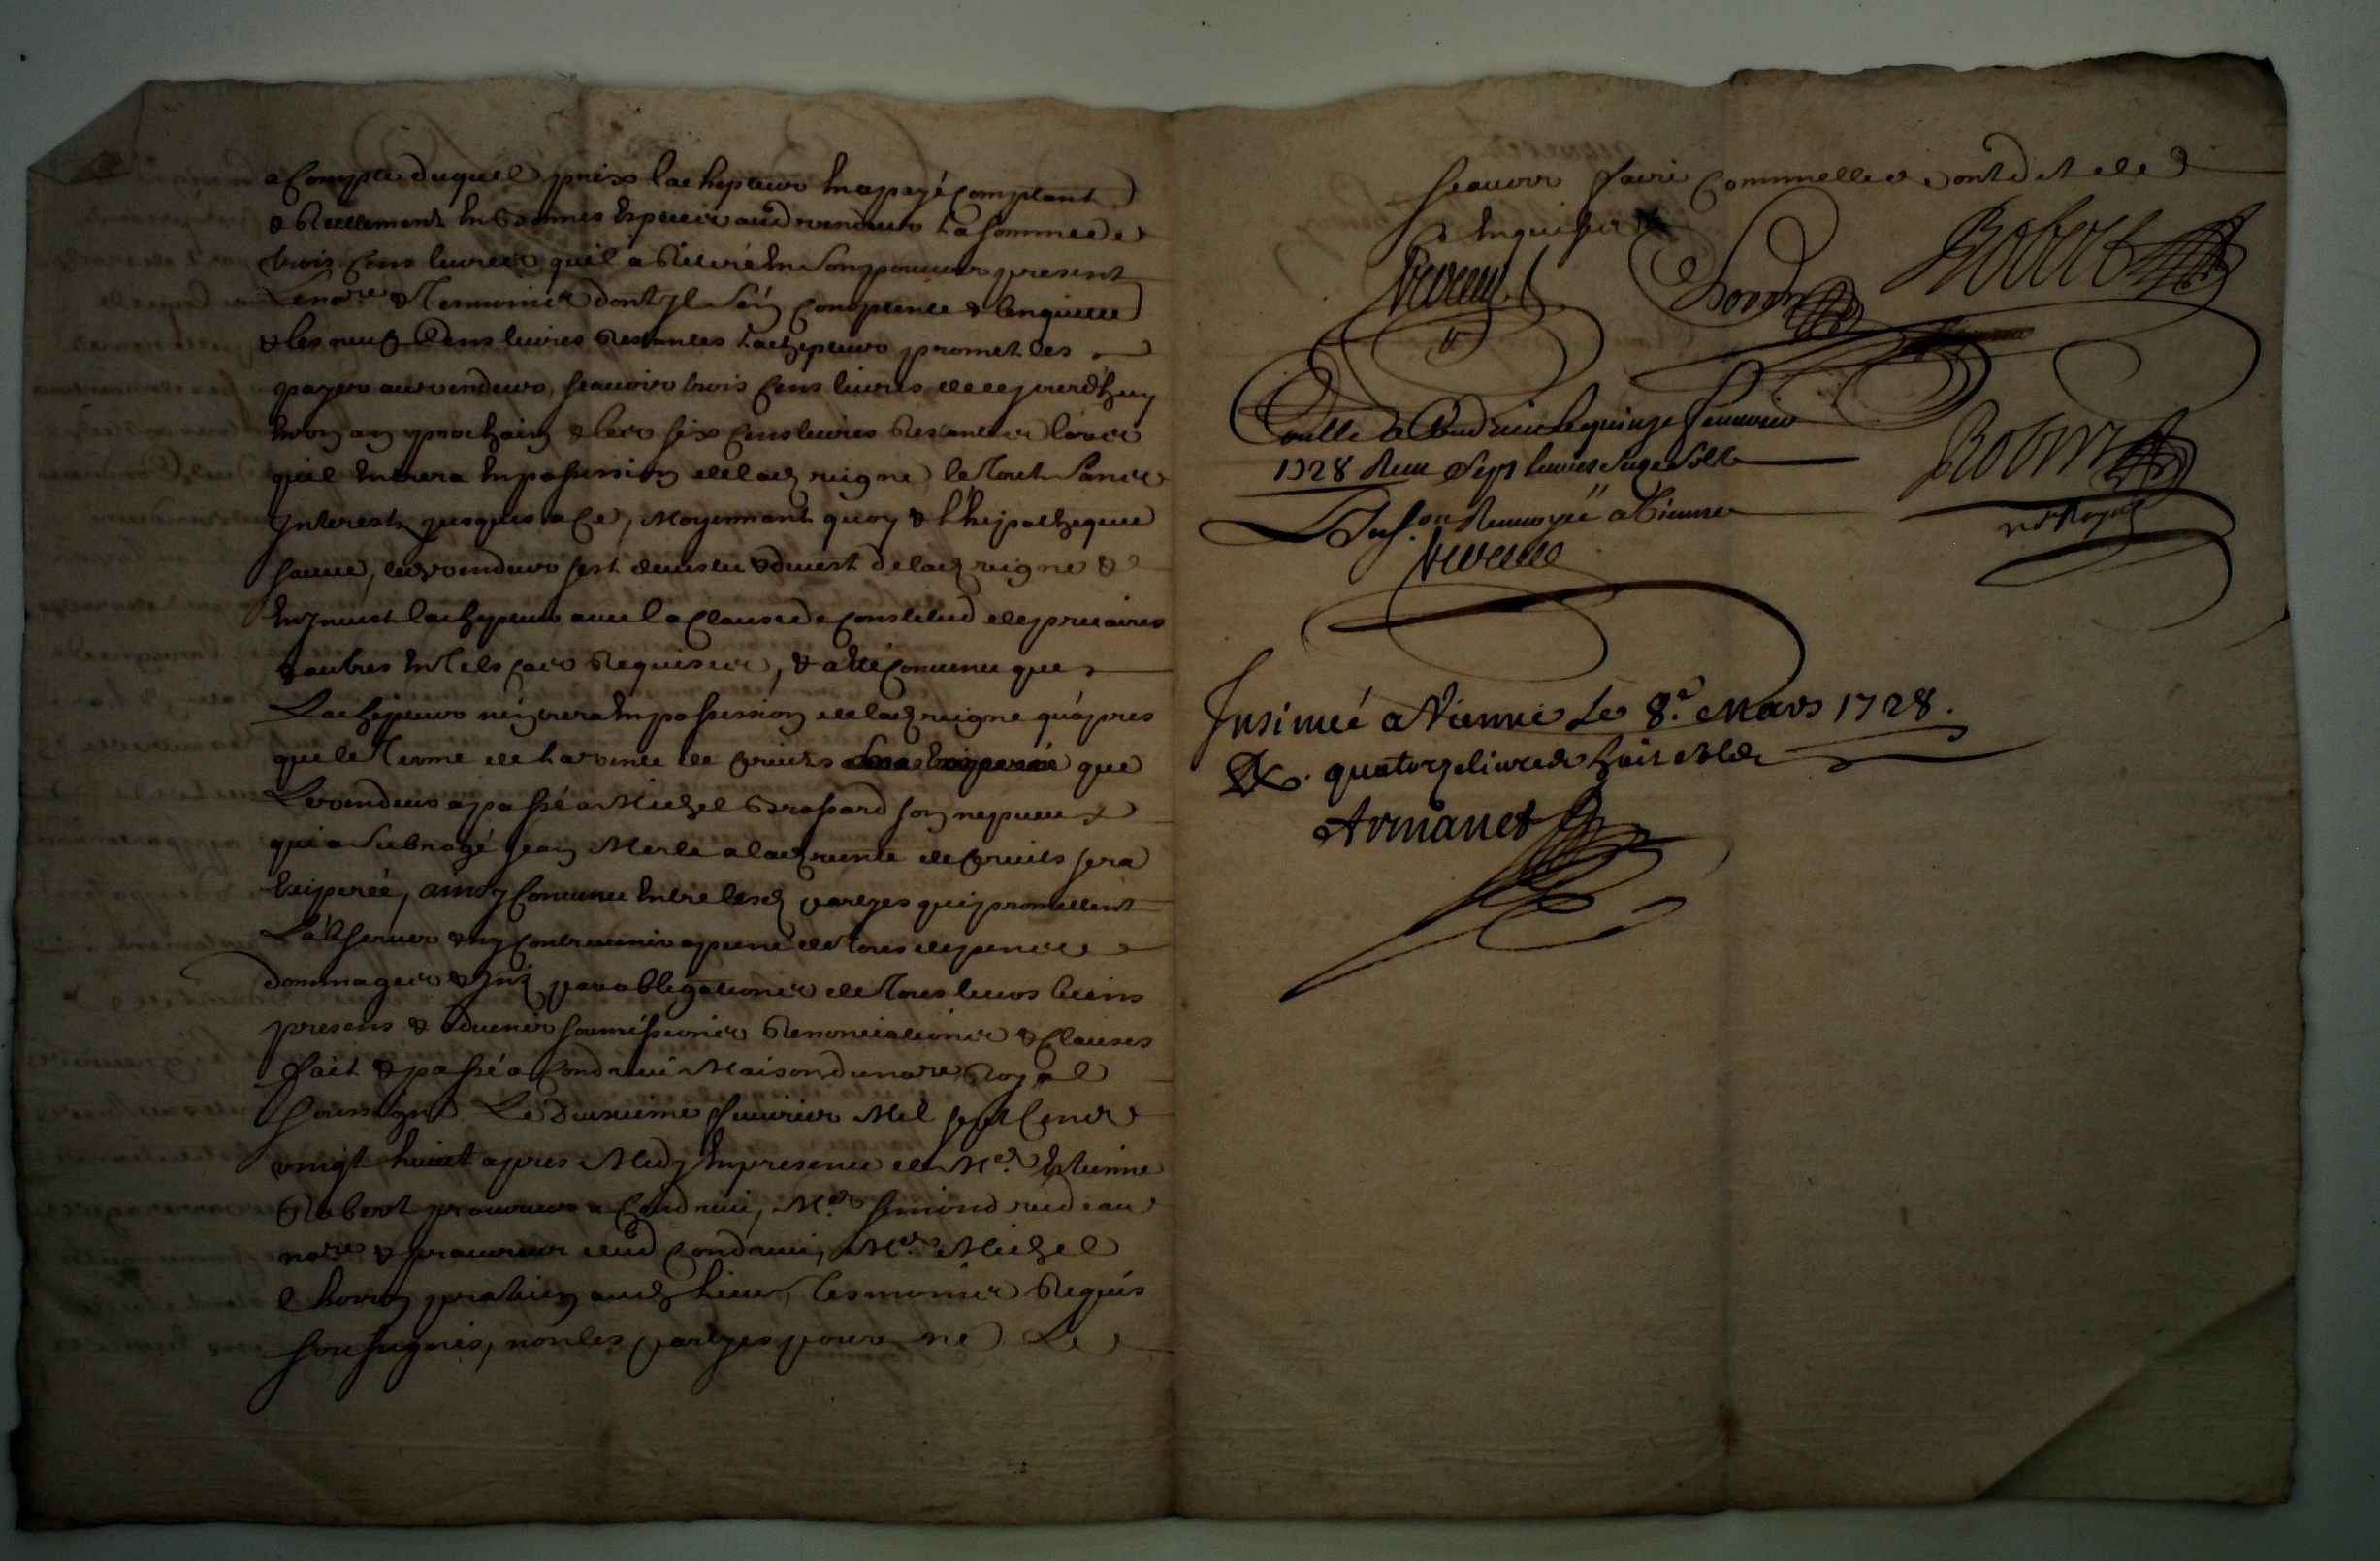 a Compte duquel prix lachepteur en a payé comptant
& Reellement En bonnes Especes aud vendeur La somme de
trois Cens livres quil a Retiré En son pouvoir present
Le no.re & Temoins dont yl sen contente & len quitte
& les neuf Cens livres Restantes Lachepteur promet les
payer au vendeur, scauoir trois Cens livres de ce jourdhuy
En un an prochain & les six Cens livres Restantes lors
quil Entrera En possession de lad vigne le Tout Sans
Interests jusques a Ce, Moyennant quoy & L'hypotheque
sauue, led vendeur sest deuestu & deuest de lad vigne &
En Inuest lachepteur auec la Clause de Constitud de precaires
& autres En Tels cas Requises, & a Esté Conuenu que
Lachepteur n'entrera En possession de lad vigne qu'apres
que le Terme de la vente de fruits que
Le vendeur a passé a Michel Brossard son nepueu &
qui a Subrogé Jean Merle a lad vente de fruits sera
Expirée, ainsy Conuenu Entre lesd partyes qui promettent
L'obseruer & ny Contreuenir a peine de Tous depends
dommages & Int par obligations de Tous leurs biens
presens & aduenir soumissions Renonciations & Clauses
fait & passé a Condrieu Maison du no.re Royal
soussigné Le Deuxieme feurier Mil sept Cens
vingt huict apres Midy En presence de M.e Estienne
Robert procureur a Condrieu, M.e simond
no.re & procureur aud Condrieu, M.e Michel
praticien aud lieu, Tesmoins Requis
soussignés, non les partyes pour ne Le
scauoir faire Comme elles ont dit de ce
Enquises
Robert
Conllé a Condrieu le quinze feurier
1728 Receu Sept liures Sols
Robert
L'Insi.on Renuoyée a Vienne
no.re Royal
Insinué a Vienne Le 8.e Mars 1728.
R. quatorze liures huit sols
Armanet